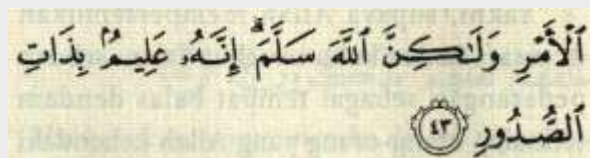 ٱلْأَمْرِ وَلَٰكِنَّ ٱللَّهَ سَلَّمَ ۗ إِنَّهُۥ عَلِيمُۢ بِذَاتِ
ٱلصُّدُورِ ٤٣